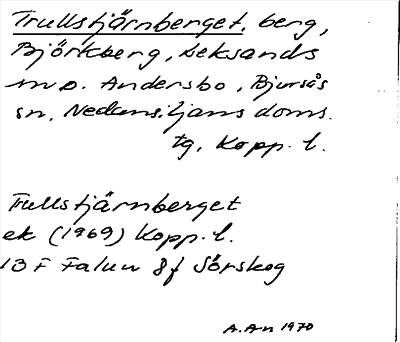 Trullstjärnberget, berg,
Björkberg, Leksands
m o. Andersbo, Bjursås
sn, Nedansiljans doms.
tg, Kopp. l.
Trullstjärnberget
ek (1969) Kopp. l.
13 F Falun 8f Sörskog
A. An 1970